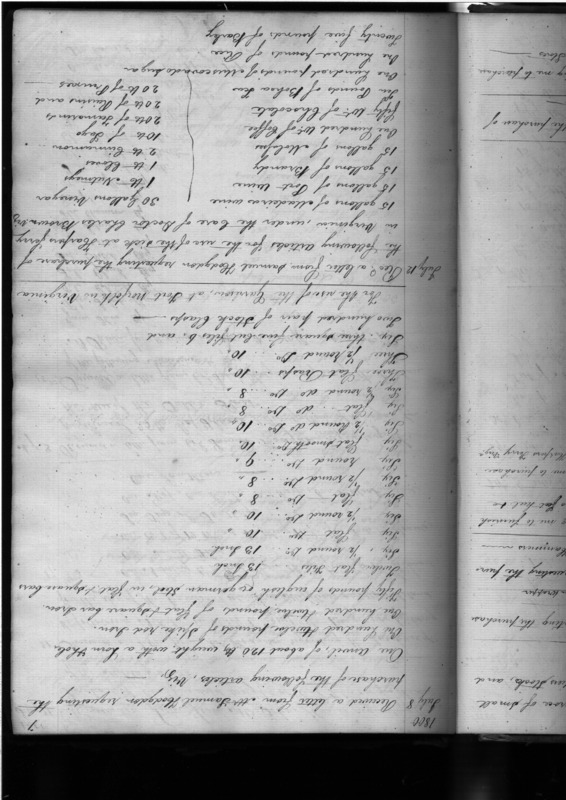 1800
7
July 8 Received a letter from Mr Samuel Hodgdon requesting the
purchase of the following articles, Viz,
One Anvil, of about 120 lb weight with a horn & hole
One hundred & twelve pounds of rod Iron.
One hundred & twelve pounds of flat & square bar Iron.
Fifty pounds of english or german Steel, in flat & square bars
flat files 13 Inch
Six, ½ round Do 13 Inch
Six flat Do 10,
Six ½ round Do 10,
Six flat Do 8,
Six ½ round Do 8,
Six round Do 9,
Six flat smooth Do 10,
Six ½ round do Do 10,
Six flat do Do 8,
Six ½ round do Do 8,
Three flat Rasps 10,
Three ½ round Do 10,
Six thin square fine cut files 6, and
Two hundred pair of Stock Clasps
For the use of the Garrison, at Fort Norfolk in Virginia
July 12 Recd a letter from Samuel Hodgdon requesting the purchase of
the following articles for the use of the Sick at Harpers ferry
in Virginia, under the Care of Doctor Charles Brown, Viz
15 gallons of Madeira wine 30 Gallons Vinegar
15 gallons of Port wine 1 lb Nutmegs
15 gallons of Brandy 1 lb Cloves
15 gallons of Molasses 2 lb Cinnamon
One hundred Wt of Coffee 10 lb of Sago
fifty Wt of Chocolate 20 lb of Tamarinds
Ten Pounds of Bohea Tea 20 lb of Raisins and
One hundred pounds of Muscovado Sugar 20 lb of Prunes
One hundred pounds of Rice
Twenty five pounds of Barley